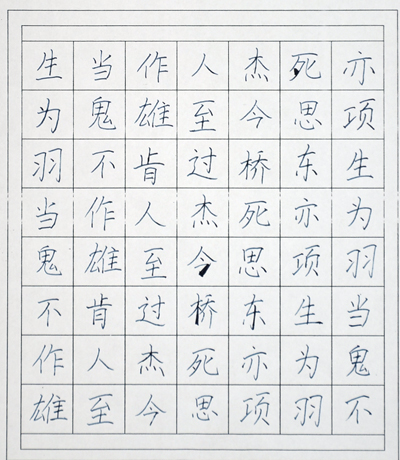 生当作人杰死亦
为鬼雄至今思项
羽不肯过桥东生
当作人杰死亦为
鬼雄至今思项羽
不肯过桥东生当
作人杰死亦为鬼
雄至今思项羽不